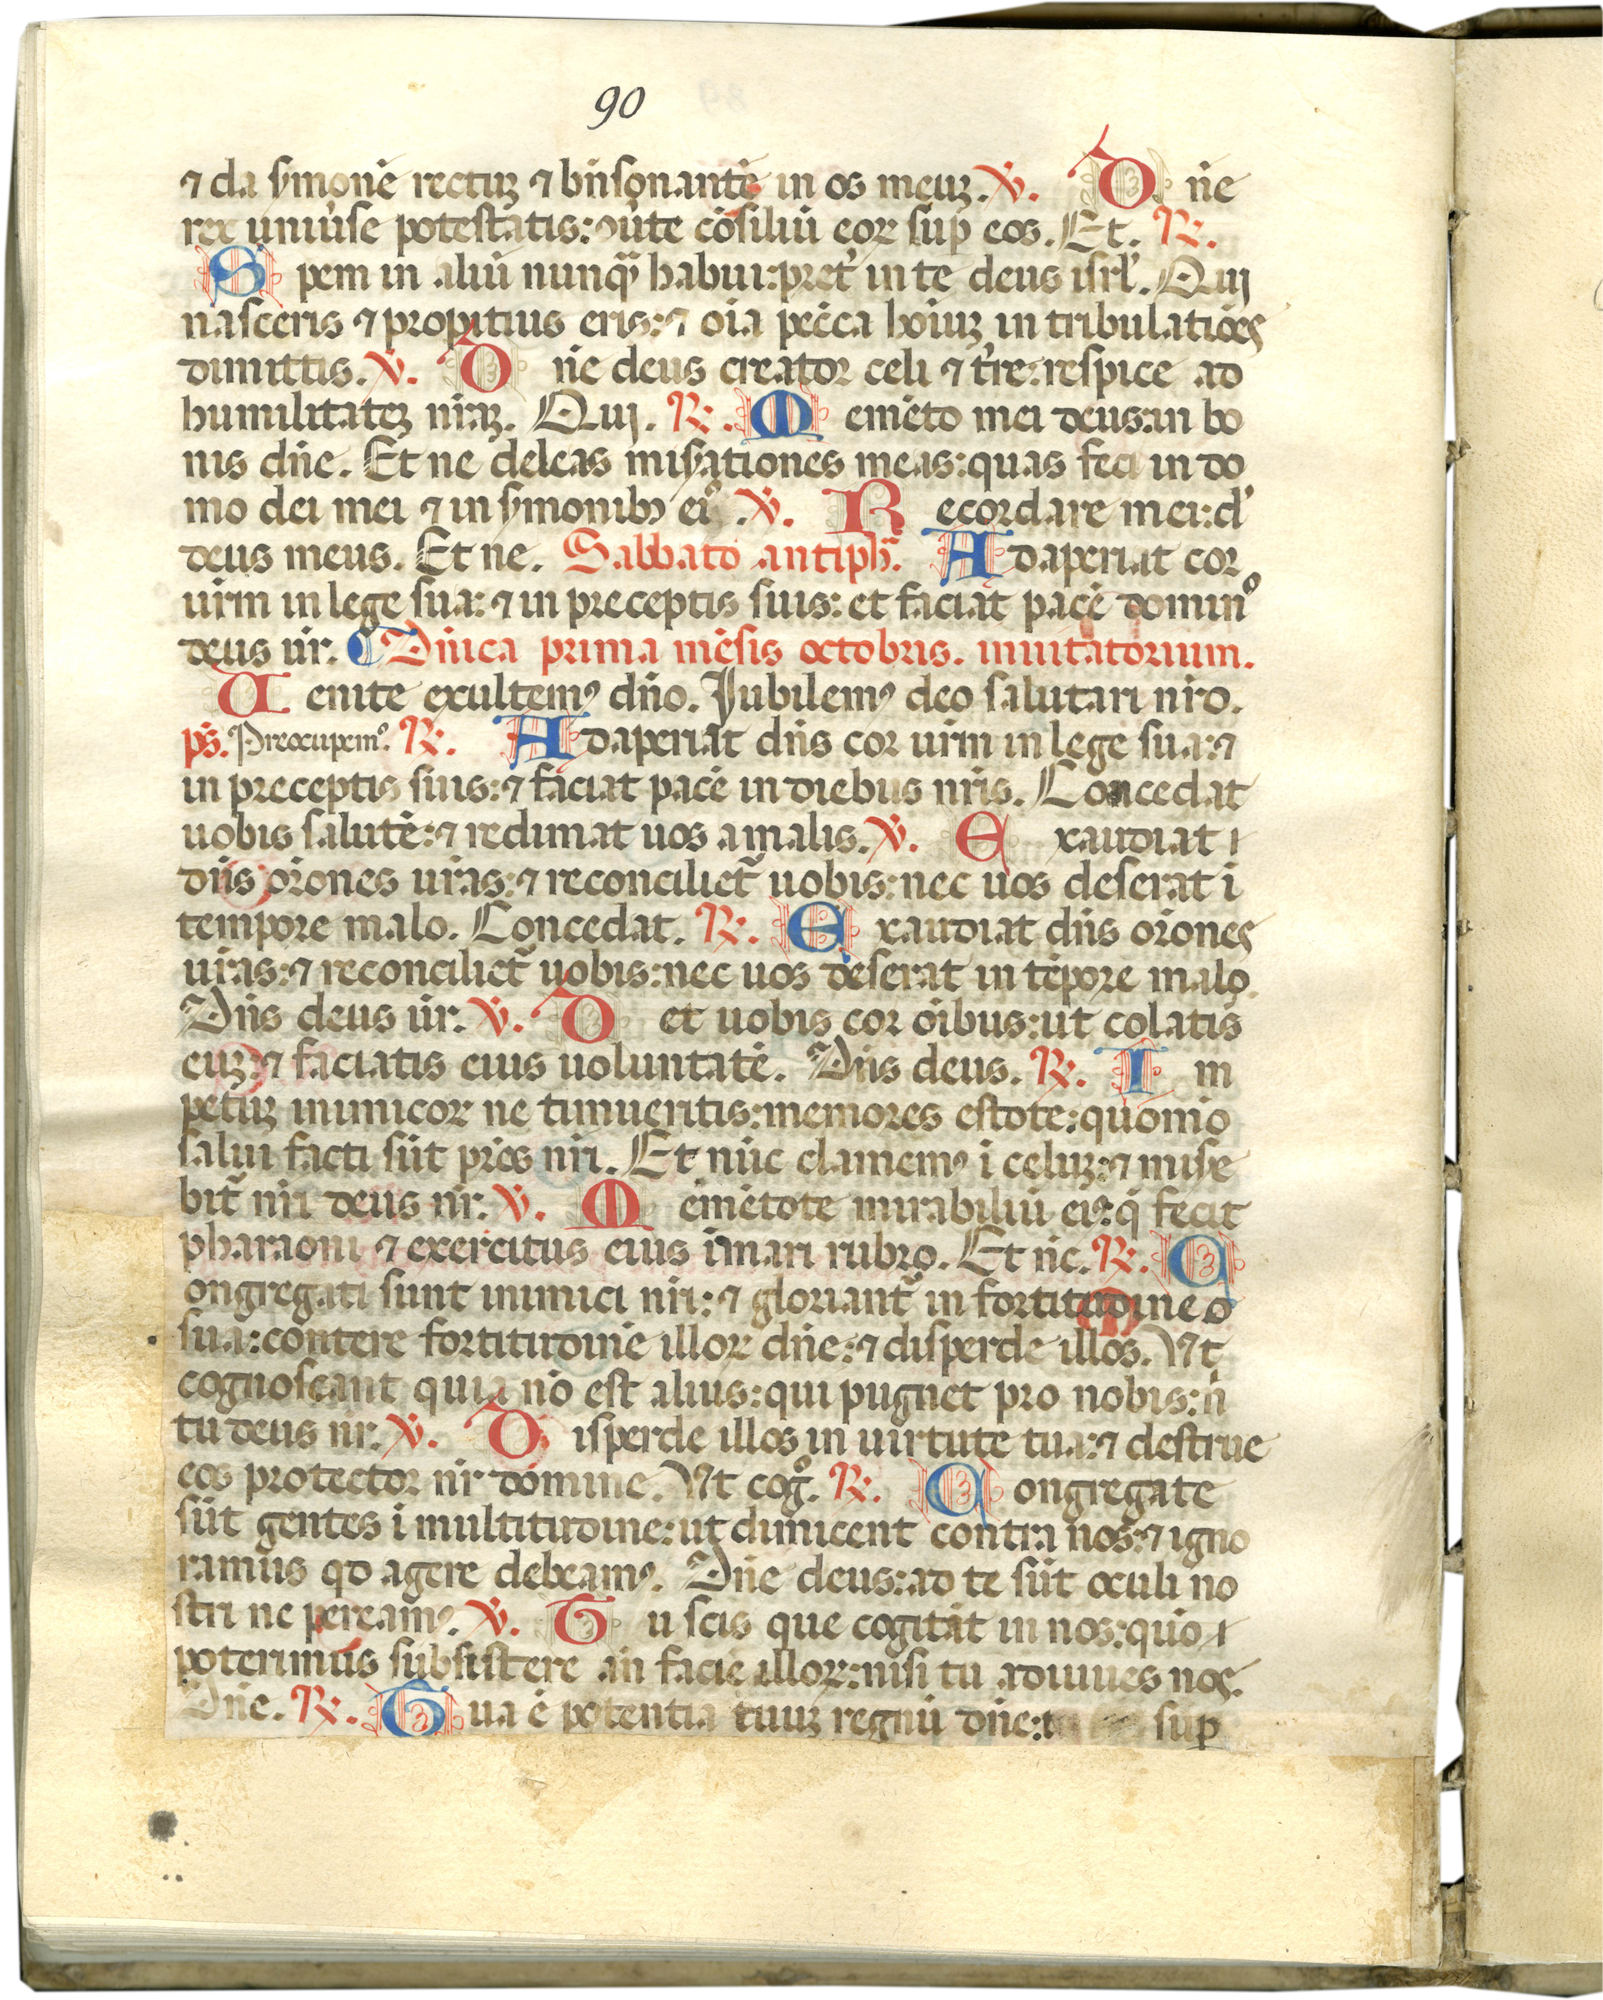 90
⁊ da ẜmonē rectuꝫ ⁊ bn̄sonantē in os meuꝫ. ℣. D n̄e
rex uniu̾se potestatis: ꝯu̾te cōsiliū eoꝝ sup̄ eos. Et. ℞.
S pem in aliū nunqᷓ habui: pret̾ in te deus isrl̾. Qui
nasceris ⁊ propitius eris: ⁊ oīa pēcca hoīuꝫ in tribulatiōes
dimittis. ℣. D n̄e deus creator celi ⁊ t̾re: respice ad
humilitateꝫ nr̄aꝫ. Qui. ℞. M emēto mei deus: in bo
nis dn̄e. Et ne deleas miẜationes meas: quas feci in do
mo dei mei ⁊ in ẜmonibꝫ eiꝰ. ℣. R ecordare mei: d̾
deus meus. Et ne. Sabbato antiph̄. A daperiat cor
ur̄m in lege sua: ⁊ in preceptis suis: et faciat pacē dominꝰ
deus ūr. Dn̄ica prima mēsis octobris. inuitatorium.
U enite exultemꝰ dn̄o. Iubilemꝰ deo salutari nr̄o.
ps̄. Preocupemꝰ. ℞. A daperiat dn̄s cor ur̄m in lege sua: ⁊
in preceptis suis: ⁊ faciat pacē in diebus nr̄is. Concedat
uobis salutē: ⁊ redimat uos a malis. ℣. E xaudiat
dn̄s or̄ones ur̄as: ⁊ reconciliet᷑ uobis: nec uos deserat ī
tempore malo. Concedat. ℞. E xaudiat dn̄s or̄ones
ur̄as: ⁊ reconciliet᷑ uobis: nec uos deserat in tēpore malo.
Dn̄s deus ūr. ℣. D et uobis cor oībus: ut colatis
euꝫ: ⁊ faciatis eius uoluntatē. Dn̄s deus. ℞. I m
petuꝫ inimicoꝝ ne timueritis: memores estote: quomō
salui facti sūt prēs nr̄i. Et nūc clamemꝰ ī celuꝫ: ⁊ miẜe
bit᷑ nr̄i deus nr̄. ℣. M emētote mirabiliū eiꝰ: q̄ fecit
pharaoni ⁊ exercitus eius ī mari rubro. Et nc̄. ℞. C
ongregati sunt inimici nr̄i: ⁊ gloriant᷑ in fortitudine
sua: contere fortitudinē illoꝝ dn̄e: ⁊ disperde illos. Ut
cognoscant quia nō est alius: qui pugnet pro nobis: n̄
tu deus nr̄. ℣. D isperde illos in uirtute tua: ⁊ destrue
eos protector nr̄ domine. Ut cogͦ. ℞. C ongregate
sūt gentes ī multitudine: ut dimicent contra nos: ⁊ igno
ramus qd agere debeamꝰ. Dn̄e deus: ad te sūt oculi no
stri ne pereamꝰ. ℣. T u scis que cogitāt in nos: quō
poterimus subsistere an̄ faciē illoꝝ: nisi tu adiuues nos.
Dn̄e. ℞. T ua ē potentia tuuꝫ regnū dn̄e: sup̄